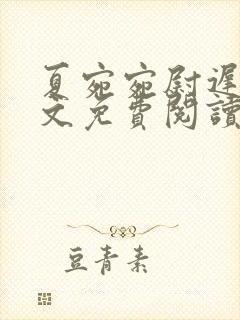 夏宛宛尉遲
文免費閱讀
豆青素